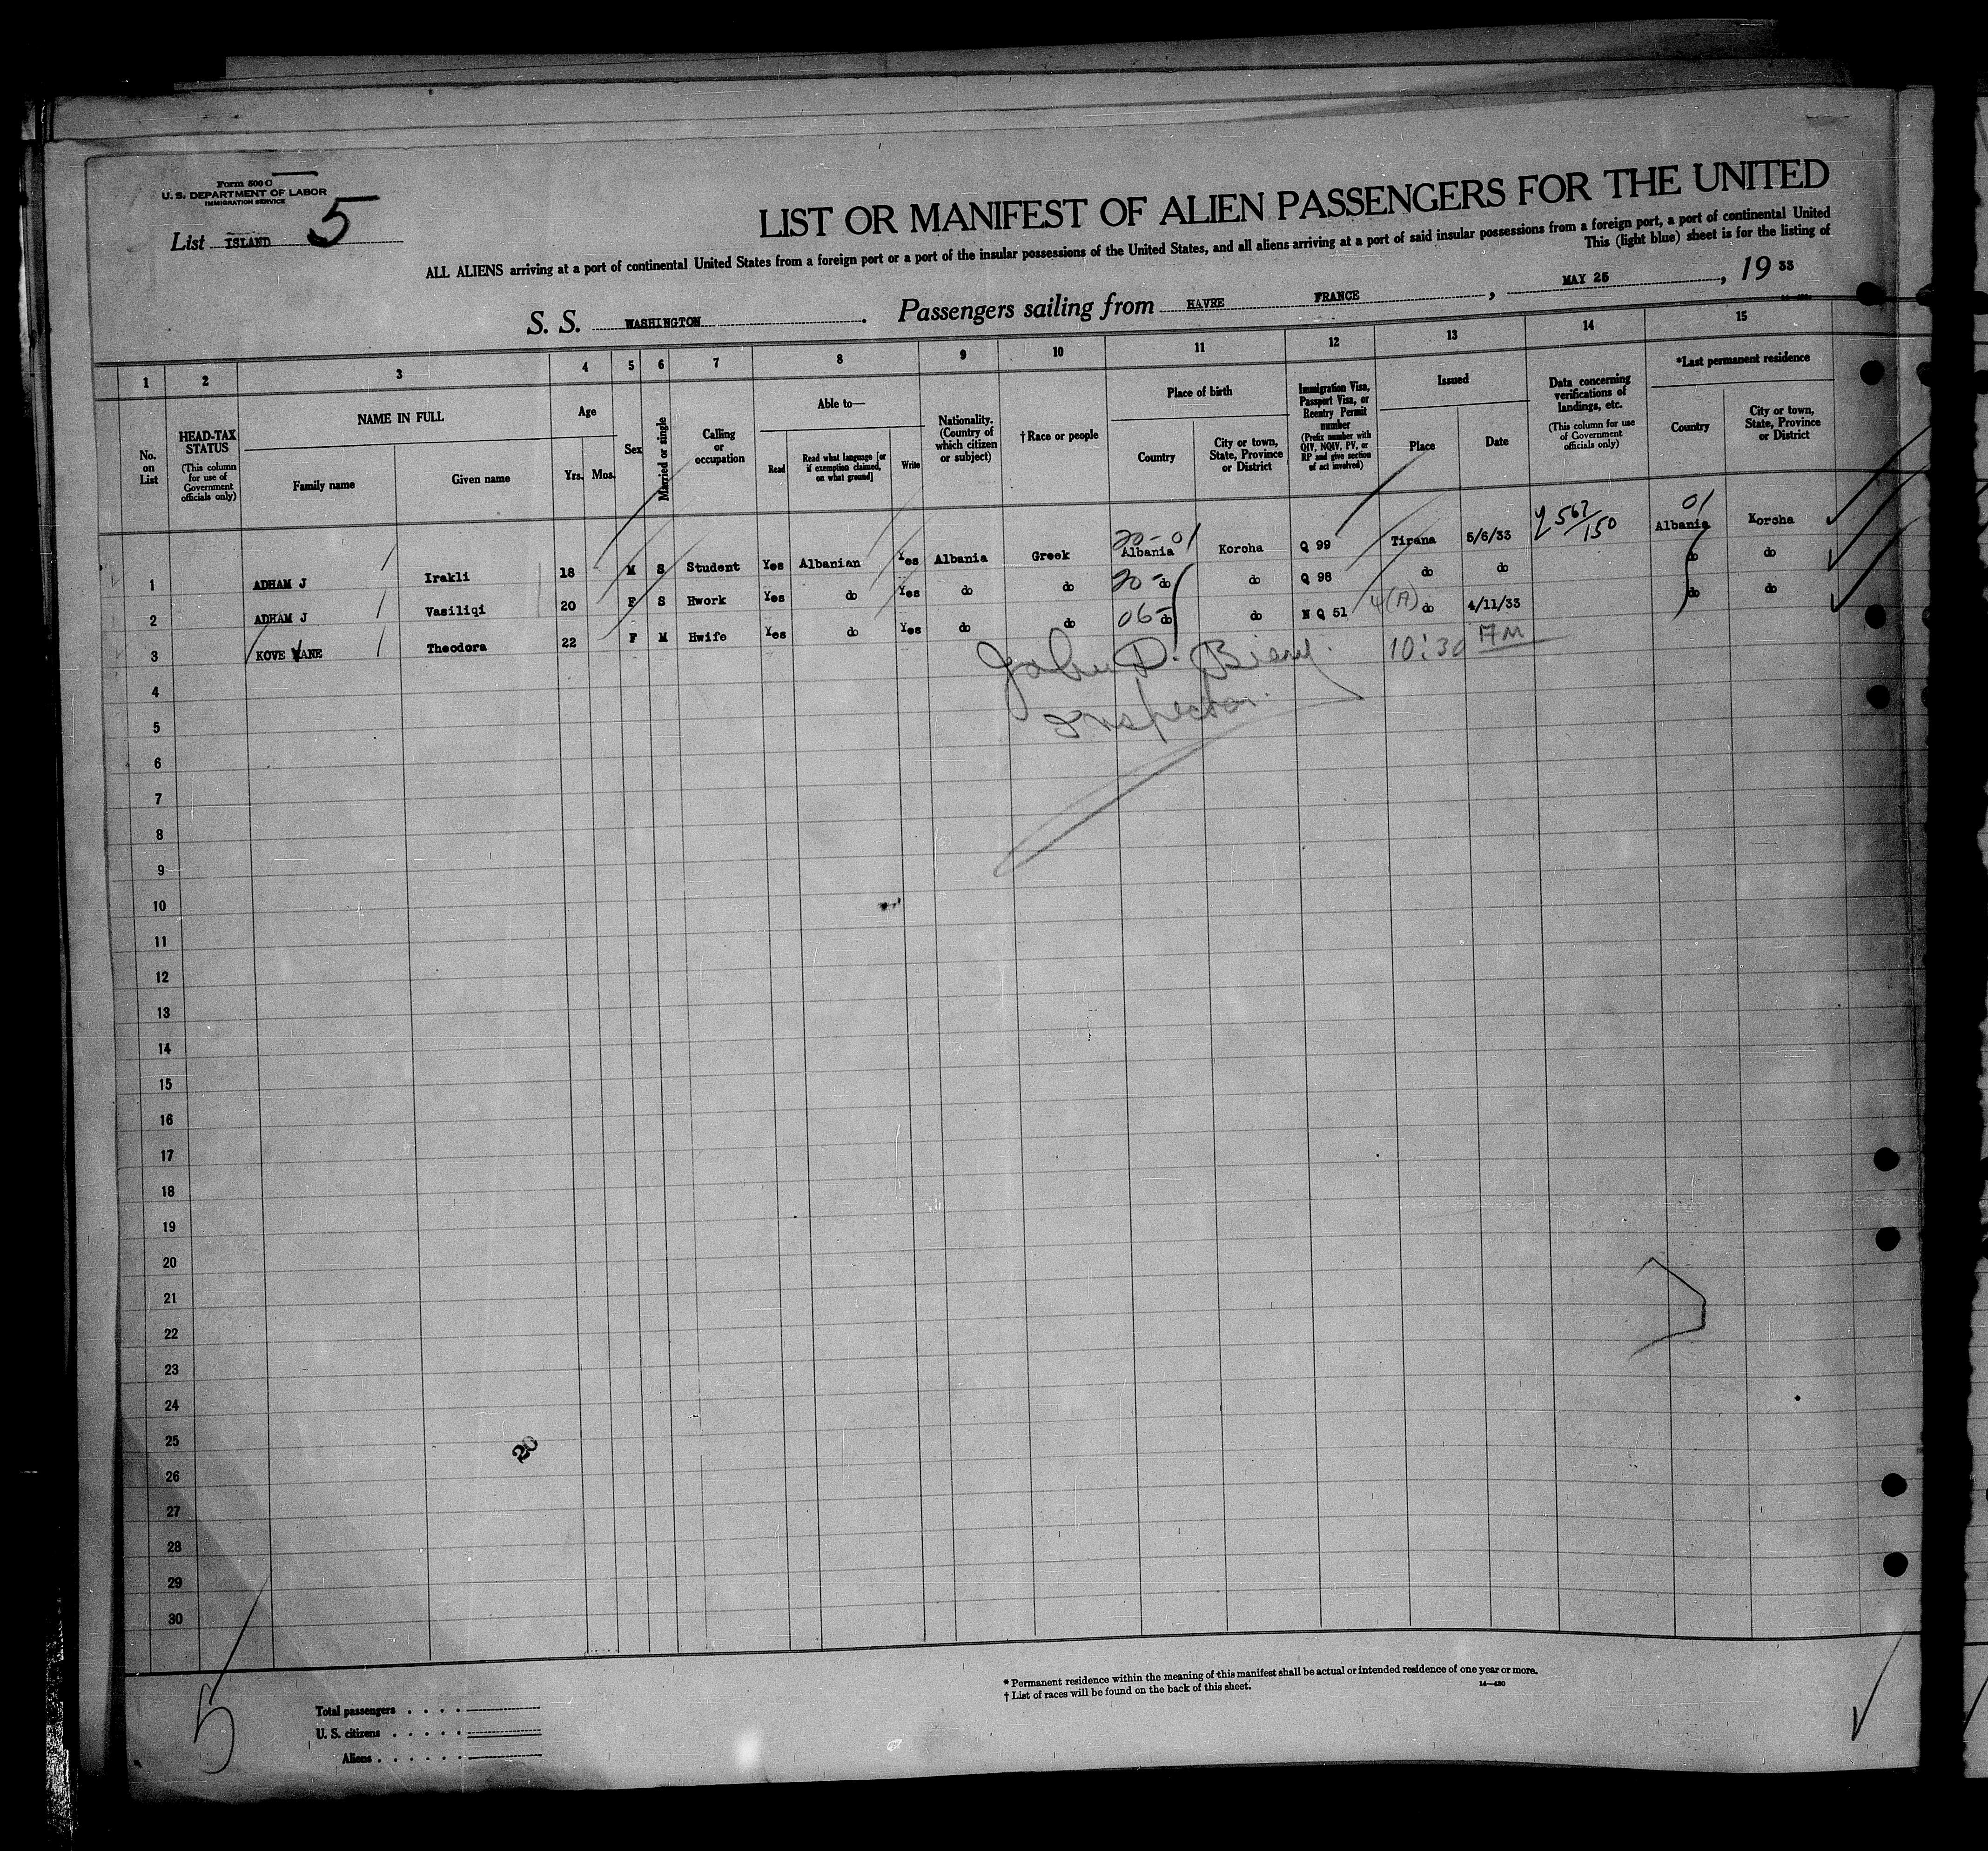 Form 500 C
U. S. DEPARTMENT OF LABOR
IMMIGRATION SERVICE
List ISLAND 5
LIST OR MANIFEST OF ALIEN PASSENGERS FOR THE UNITED
ALL ALIENS arriving at a port of continental United States from a foreign port or a port of the insular possessions of the United States, and all aliens arriving at a port of said insular possessions from a foreign port, a port of continental United
This (light blue) sheet is for the listing of
S. S. WASHINGTON. Passengers sailing from HAVRE FRANCE, MAY 25, 19 33
1 2 3 4 5 6 7 8 9 10 11 12 13 14 15
No. on List
HEAD-TAX STATUS
(This column for use of Government officials only)
NAME IN FULL
Family name
Given name
Age
Yrs. Mos.
Sex
Married or single
Calling or occupation
Able to—
Read
Read what language [or if exemption claimed, on what ground]
Write
Nationality. (Country of which citizen or subject)
† Race or people
Place of birth
Country
City or town, State, Province or District
Immigration Visa, Passport Visa, or Reentry Permit number
(Prefix number with QIV, NQIV, PV, or RP and give section of act involved)
Issued
Place
Date
Data concerning verifications of landings, etc.
(This column for use of Government officials only)
*Last permanent residence
Country
City or town, State, Province or District
20-01 562/150 01
1 ADHAM J Irakli 18 M S Student Yes Albanian Yes Albania Greek Albania Koroha Q 99 Tirana 5/6/33 Albania Koroha
2 ADHAM J Vasiliqi 20 F S Hwork Yes do Yes do do 20- do do Q 98 do do do do
3 KOVE VANE Theodora 22 F M Hwife Yes do Yes do do 06- do do N Q 51 4(A) do 4/11/33 do do
John D. 10:30 AM
Inspector.
4
5
6
7
8
9
10
11
12
13
14
15
16
17
18
19
20
21
22
23
24
25
20
26
27
28
29
30
* Permanent residence within the meaning of this manifest shall be actual or intended residence of one year or more.
† List of races will be found on the back of this sheet.
14—480
5
Total passengers
U. S. citizens
Aliens